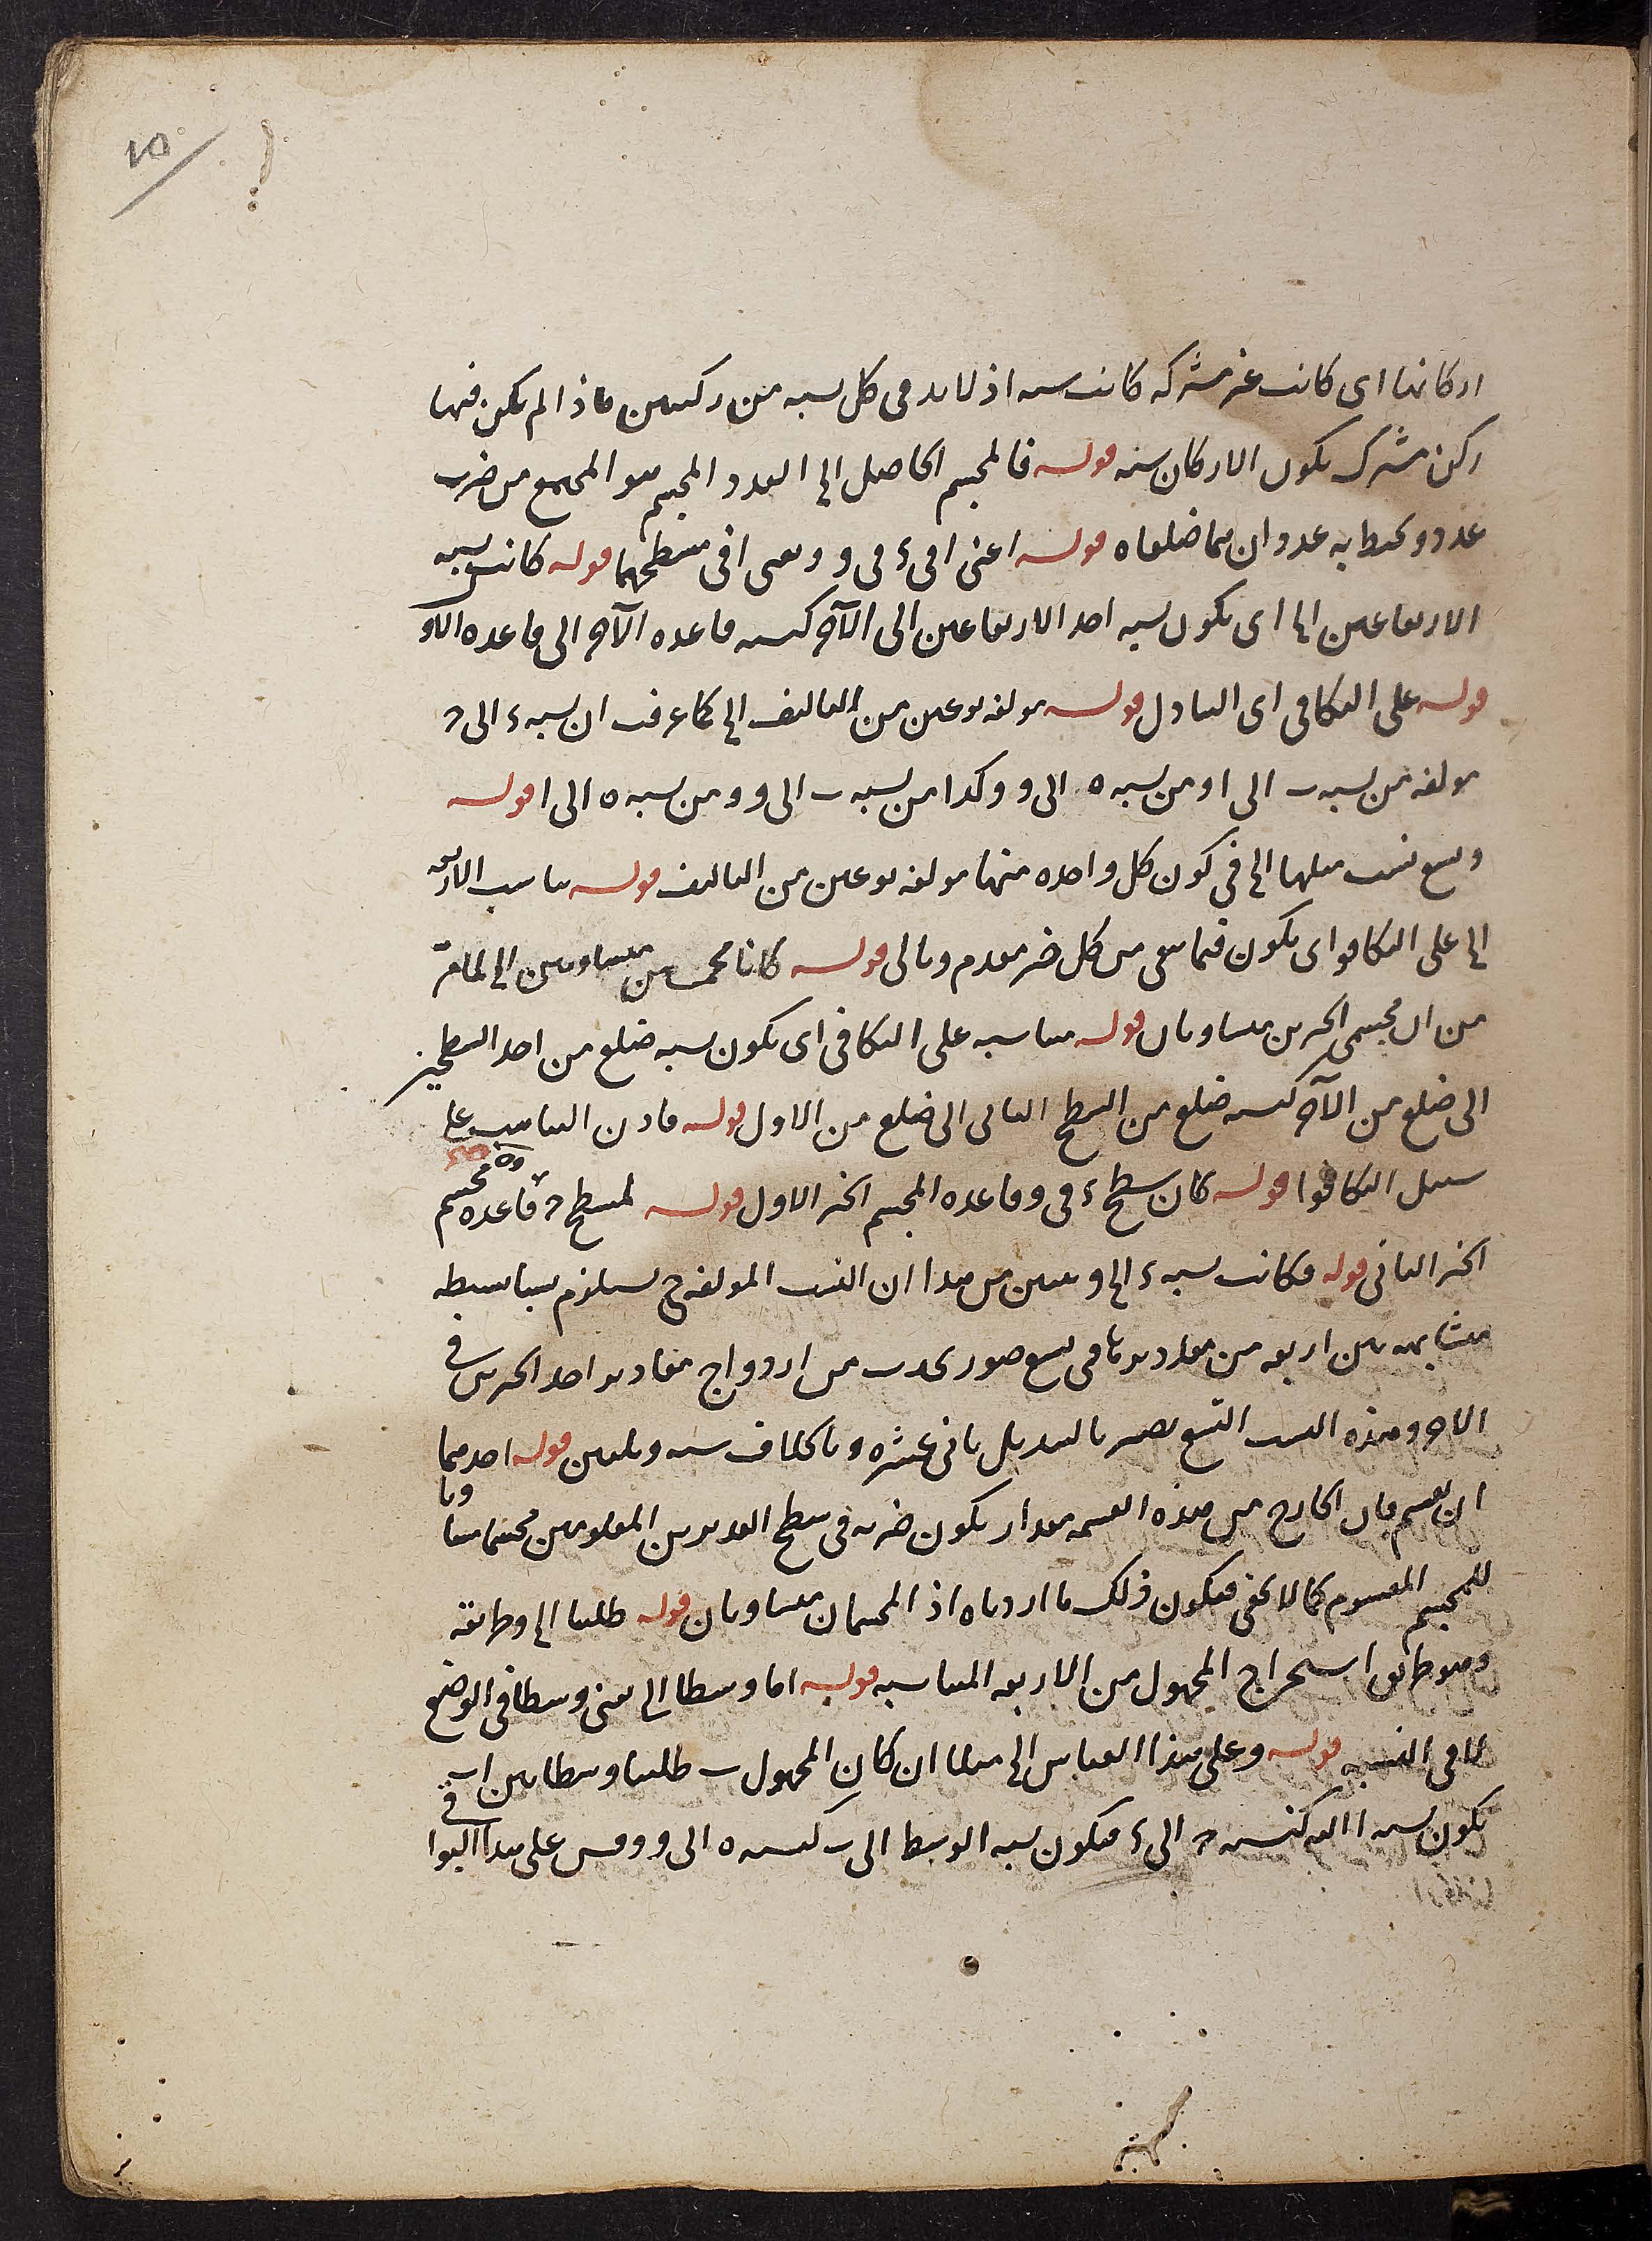 ٢٥
اركانها اى كانت غير مشتركه كانت سته اذ لابد فى كل نسبه من ركنين فاذا لم يكن فيها
ركن مشترك يكون الاركان سته قوله فالمجسم الحاصل الخ العدد المجسم هو المجتمع من ضرب
عدد و يحيط به عددان هما ضلعاه قوله اعنى ا فى ء فى و و معنى ا فى مسطحهما قوله كانت نسبه
الارتفاعين الخ اى يكون نسبه احد الارتفاعين الى الآخر كنسبه قاعده الآخر الى قاعده الاول
قوله على التكافى اى التبادل قوله مولفه نوعين من التاليف الخ كما عرفت ان نسبه ء الى ح
مولفه من نسبه ب الى ا و من نسبه ه الى و و كذا من نسبه ب الى و و من نسبه ه الى ا قوله
و تسع نسب مثلها الخ فى كون كل واحده منها مولفه نوعين من التاليف قوله تناسب الاربعه
الخ على التكافو اى يكون فيما بقى من كل حيز مقدم و تالى قوله كانا مجسمين متساويين الخ لما مر
من ان مجسمى الحيزين متساويان قوله متناسبه على التكافى اى يكون نسبه ضلع من احد السطحين
الى ضلع من الآخر كنسبه ضلع من السطح الثانى الى ضلع من الاول قوله فاذن التناسب على
سبيل التكافوا قوله كان سطح ء فى و قاعده المجسم الحيز الاول قوله لسطح ح قاعده مجسم
الحيز الثانى قوله فكانت نسبه ء الخ و تبين من هذا ان النسب المولفه ح يستلزم نسبا بسيطه
متشابهه بين اربعه من مقاديرها فى تسع صور يحدث من ازدواج مقادير احد الحيزين فى
الاخر و هذه النسب التسع يصير بالتبديل ثمانى عشره و بالخلاف سته و ثلثين قوله احدهما
ان يقسم فان الخارج من هذه القسمه مقدار يكون ضربه فى سطح القدرين المعلومين مجسما مساويا
للمجسم المقسوم كما لا يخفى فيكون ذلك ما اردناه اذ المجسمان متساويان قوله طلبنا الخ و طريقه
و هو طريق استخراج المجهول من الاربعه المتناسبه قوله اما وسطا الخ يعنى وسطا فى الوضع
لا فى النسبه قوله و على هذا القياس الخ مثلا ان كان المجهول ب طلبنا وسطا بين ا ب
يكون نسبه ا اليه كنسبه ح الى ء فيكون نسبه الوسط الى ب كنسبه ه الى و و قس على هذا البواقى